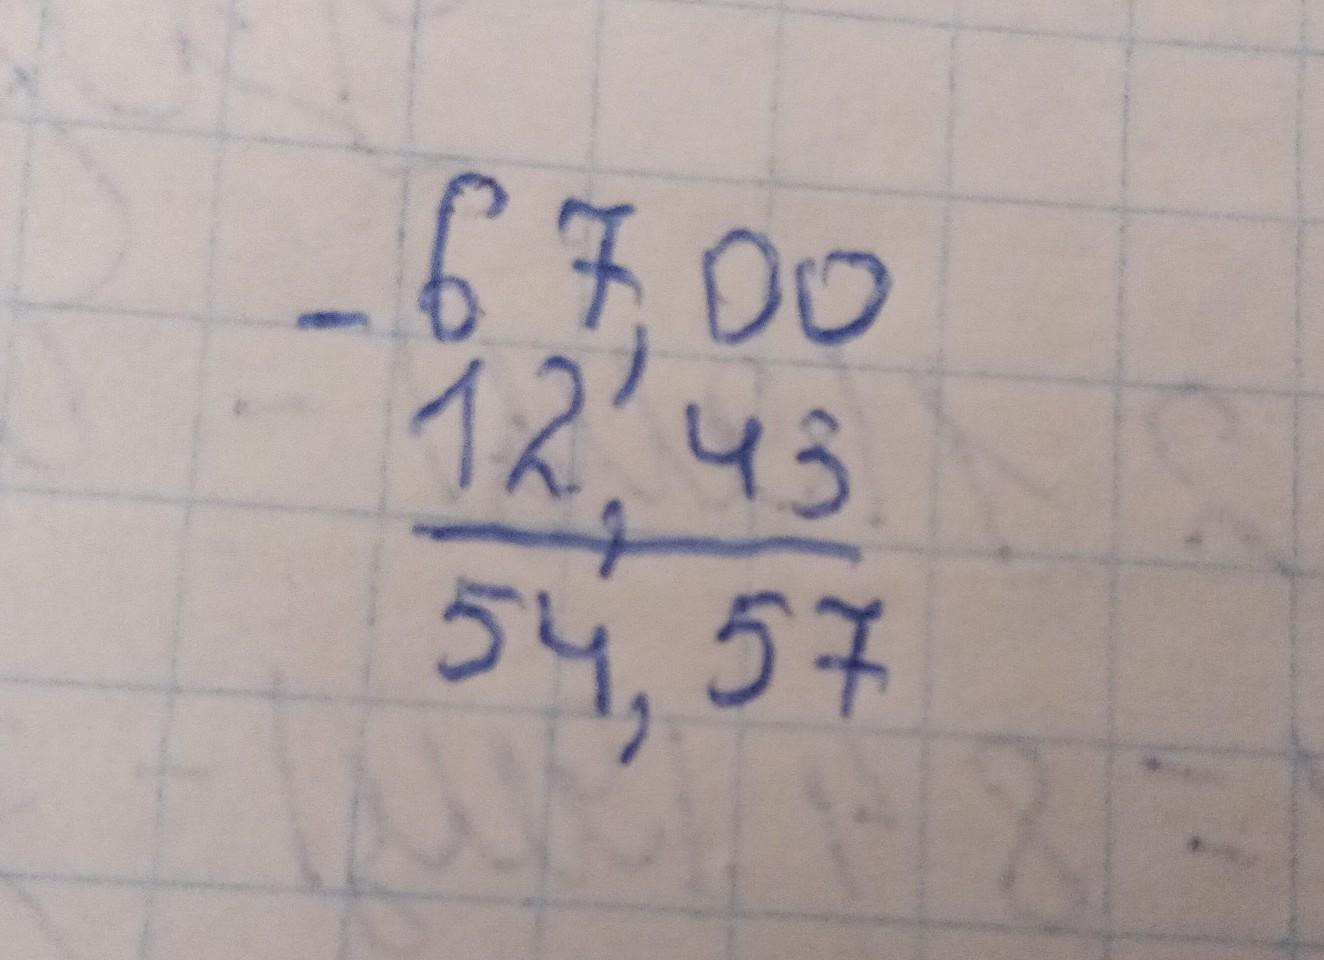 - 67,00
12,43
54,57